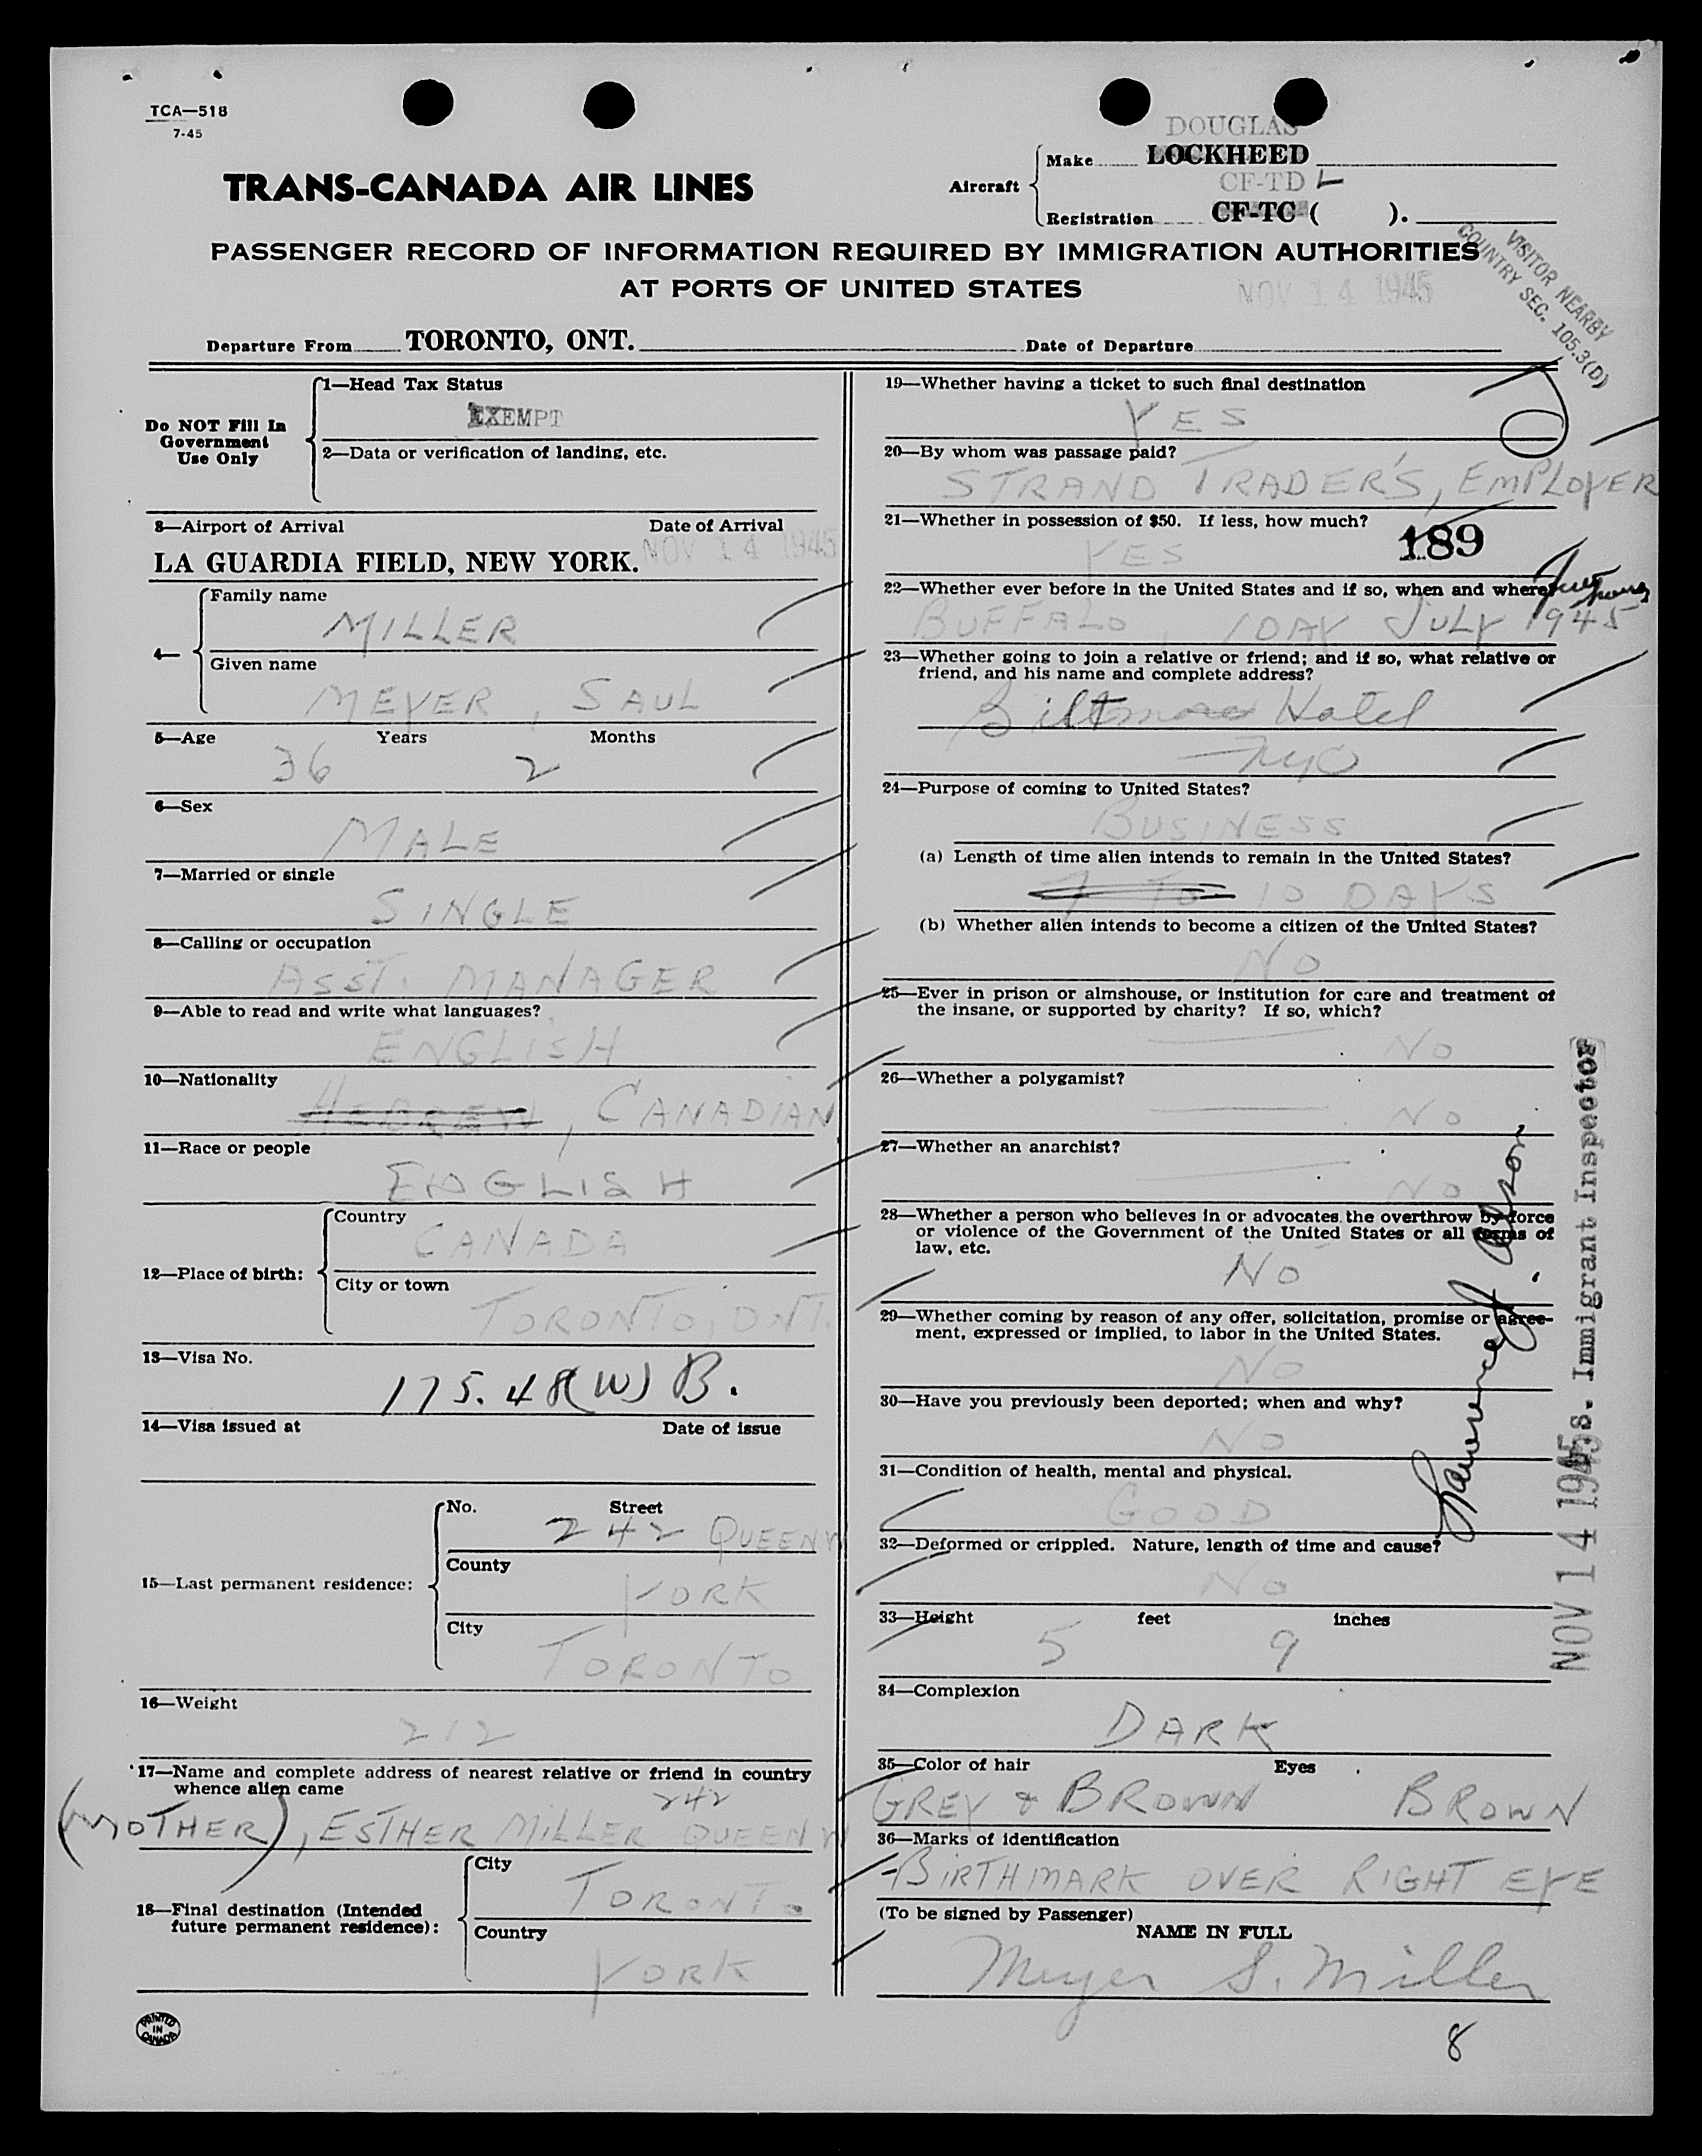 TCA—518
7-45
TRANS-CANADA AIR LINES
DOUGLAS
Aircraft
Make LOCKHEED
CF-TD L
Registration CF-TC ( ).
PASSENGER RECORD OF INFORMATION REQUIRED BY IMMIGRATION AUTHORITIES
AT PORTS OF UNITED STATES
NOV 14 1945
VISITOR NEARBY
COUNTRY SEC. 105.3(D)
Departure From TORONTO, ONT. Date of Departure
Do NOT Fill In
Government
Use Only
1—Head Tax Status
EXEMPT
2—Data or verification of landing, etc.
3—Airport of Arrival Date of Arrival
LA GUARDIA FIELD, NEW YORK. NOV 14 1945
4—
Family name
MILLER
Given name
MEYER, SAUL
5—Age Years Months
36 2
6—Sex
MALE
7—Married or single
SINGLE
8—Calling or occupation
ASST. MANAGER
9—Able to read and write what languages?
ENGLISH
10—Nationality
HEBREW, CANADIAN
11—Race or people
ENGLISH
12—Place of birth:
Country
CANADA
City or town
TORONTO, ONT.
13—Visa No.
175.48(W) B.
14—Visa issued at Date of issue
15—Last permanent residence:
No. Street
242 QUEEN W
County
YORK
City
TORONTO
16—Weight
212
17—Name and complete address of nearest relative or friend in country
whence alien came
242
(MOTHER), ESTHER MILLER QUEEN W
18—Final destination (Intended
future permanent residence):
City
TORONTO
Country
YORK
PRINTED
IN
CANADA
19—Whether having a ticket to such final destination
YES
20—By whom was passage paid?
STRAND TRADER'S, EMPLOYER
21—Whether in possession of $50. If less, how much?
YES
189
22—Whether ever before in the United States and if so, when and where?
BUFFALO, 1 DAY JULY 1945
23—Whether going to join a relative or friend; and if so, what relative or
friend, and his name and complete address?
Biltmore Hotel
NYC
24—Purpose of coming to United States?
BUSINESS
(a) Length of time alien intends to remain in the United States?
7 TO 10 DAYS
(b) Whether alien intends to become a citizen of the United States?
NO
25—Ever in prison or almshouse, or institution for care and treatment of
the insane, or supported by charity? If so, which?
NO
26—Whether a polygamist?
NO
27—Whether an anarchist?
NO
28—Whether a person who believes in or advocates the overthrow by force
or violence of the Government of the United States or all forms of
law, etc.
NO
29—Whether coming by reason of any offer, solicitation, promise or agree-
ment, expressed or implied, to labor in the United States.
NO
30—Have you previously been deported; when and why?
NO
31—Condition of health, mental and physical.
GOOD
32—Deformed or crippled. Nature, length of time and cause?
NO
33—Height feet inches
5 9
34—Complexion
DARK
35—Color of hair Eyes
GREY & BROWN BROWN
36—Marks of identification
BIRTHMARK OVER RIGHT EYE
(To be signed by Passenger)
NAME IN FULL
Meyer S. Miller
8
Lawrence J.
NOV 14 1945
Immigrant Inspector